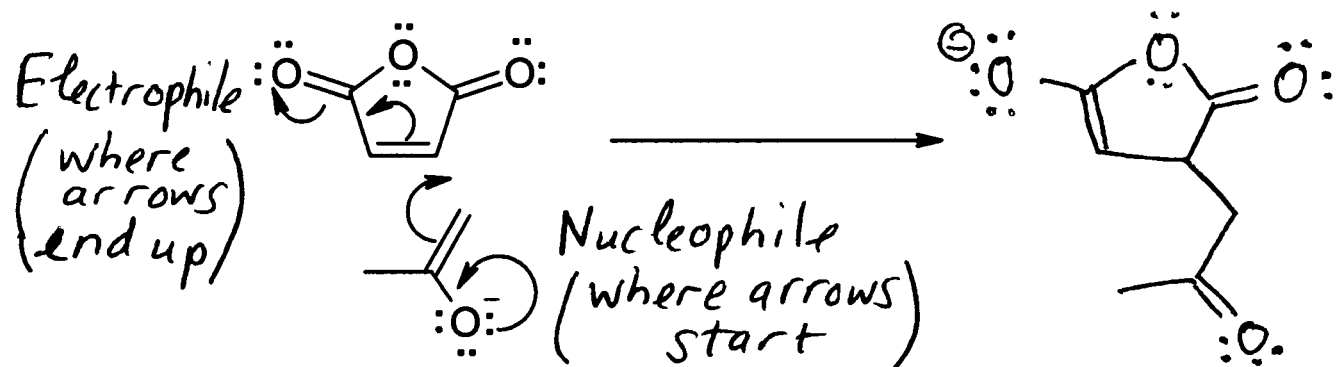 Electrophile
(where
arrows
end up)
:O
O
O:
:O:
−
Nucleophile
(where arrows
start)
⊖
:O
O
O:
:O: